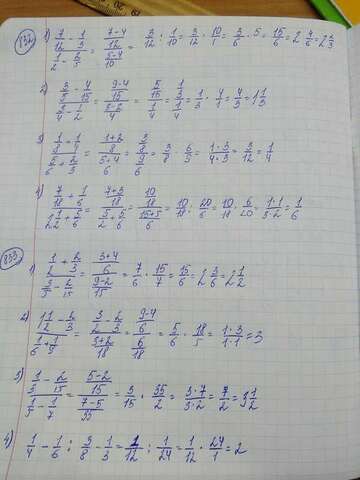 832
1) (7/12 - 1/3)/(1/2 - 2/5) = ((7-4)/12)/((5-4)/10) = 3/12 : 1/10 = 3/12 · 10/1 = 3/6 · 5 = 15/6 = 2 4/6 = 2 2/3
2) = ((9-4)/15)/((3-2)/4) = 1/3 · 4/1 = 4/3 = 1 1/3
3) = ((1+2)/8)/((5+4)/6) = 3/8 · 6/9 = (1·3)/(4·3) = 3/12 = 1/4
4) (7/18 + 1/6)/(2 1/2 + 5/6) = ((7+3)/18)/(5/2 + 5/6) = (10/18)/((15+5)/6) = 10/18 : 20/6 = 10/18 · 6/20 = (1·1)/(3·2) = 1/6
833
1) (1/2 + 2/3)/(3/5 - 2/15) = ((3+4)/6)/((9-2)/15) = 7/6 · 15/7 = 15/6 = 2 3/6 = 2 1/2
2) = (3/2 - 2/3)/((3+2)/18) = ((9-4)/6)/ = 5/6 · 18/5 = (1·3)/(1·1) = 3
3) (1/3 - 2/15)/(1/5 - 1/7) = ((5-2)/15)/((7-5)/35) = 3/15 · 35/2 = (3·7)/(3·2) = 7/2 = 3 1/2
4) 1/4 - 1/6 : 3/8 - 1/3 = 1/12 : 1/24 = 1/12 · 24/1 = 2